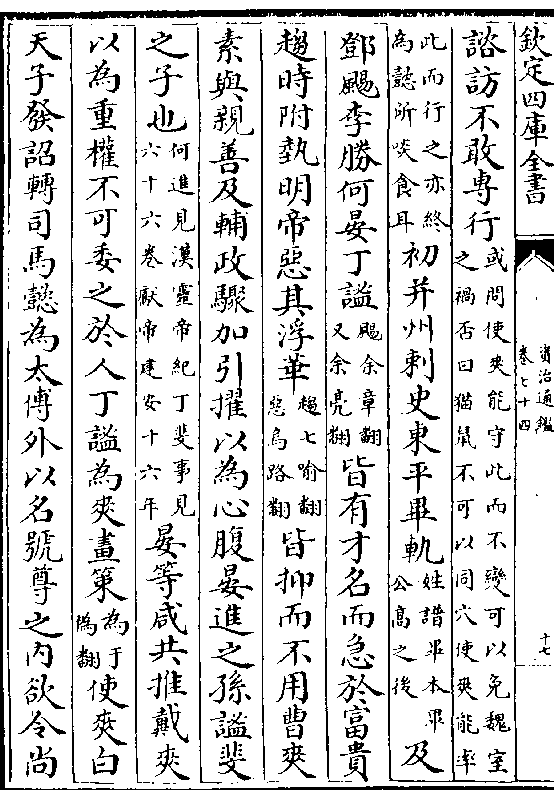 欽定四庫全書
資治通鑑
卷七十四
十七
諮訪不敢專行或問使爽能守此而不變可以免魏室之禍否曰猫鼠不可以同穴使爽能率
此而行之亦終為懿所啖食耳初并州刺史東平畢軌姓譜畢本畢公高之後及
鄧颺李勝何晏丁謐颺余章翻又余亮翻皆有才名而急於富貴
趨時附埶明帝惡其浮華趨七喻翻惡烏路翻皆抑而不用曹爽
素與親善及輔政驟加引擢以為心腹晏進之孫謐斐
之子也何進見漢靈帝紀丁斐事見六十六卷獻帝建安十六年晏等咸共推戴爽
以為重權不可委之於人丁謐為爽畫策為于偽翻使爽白
天子發詔轉司馬懿為太傅外以名號尊之内欲令尚